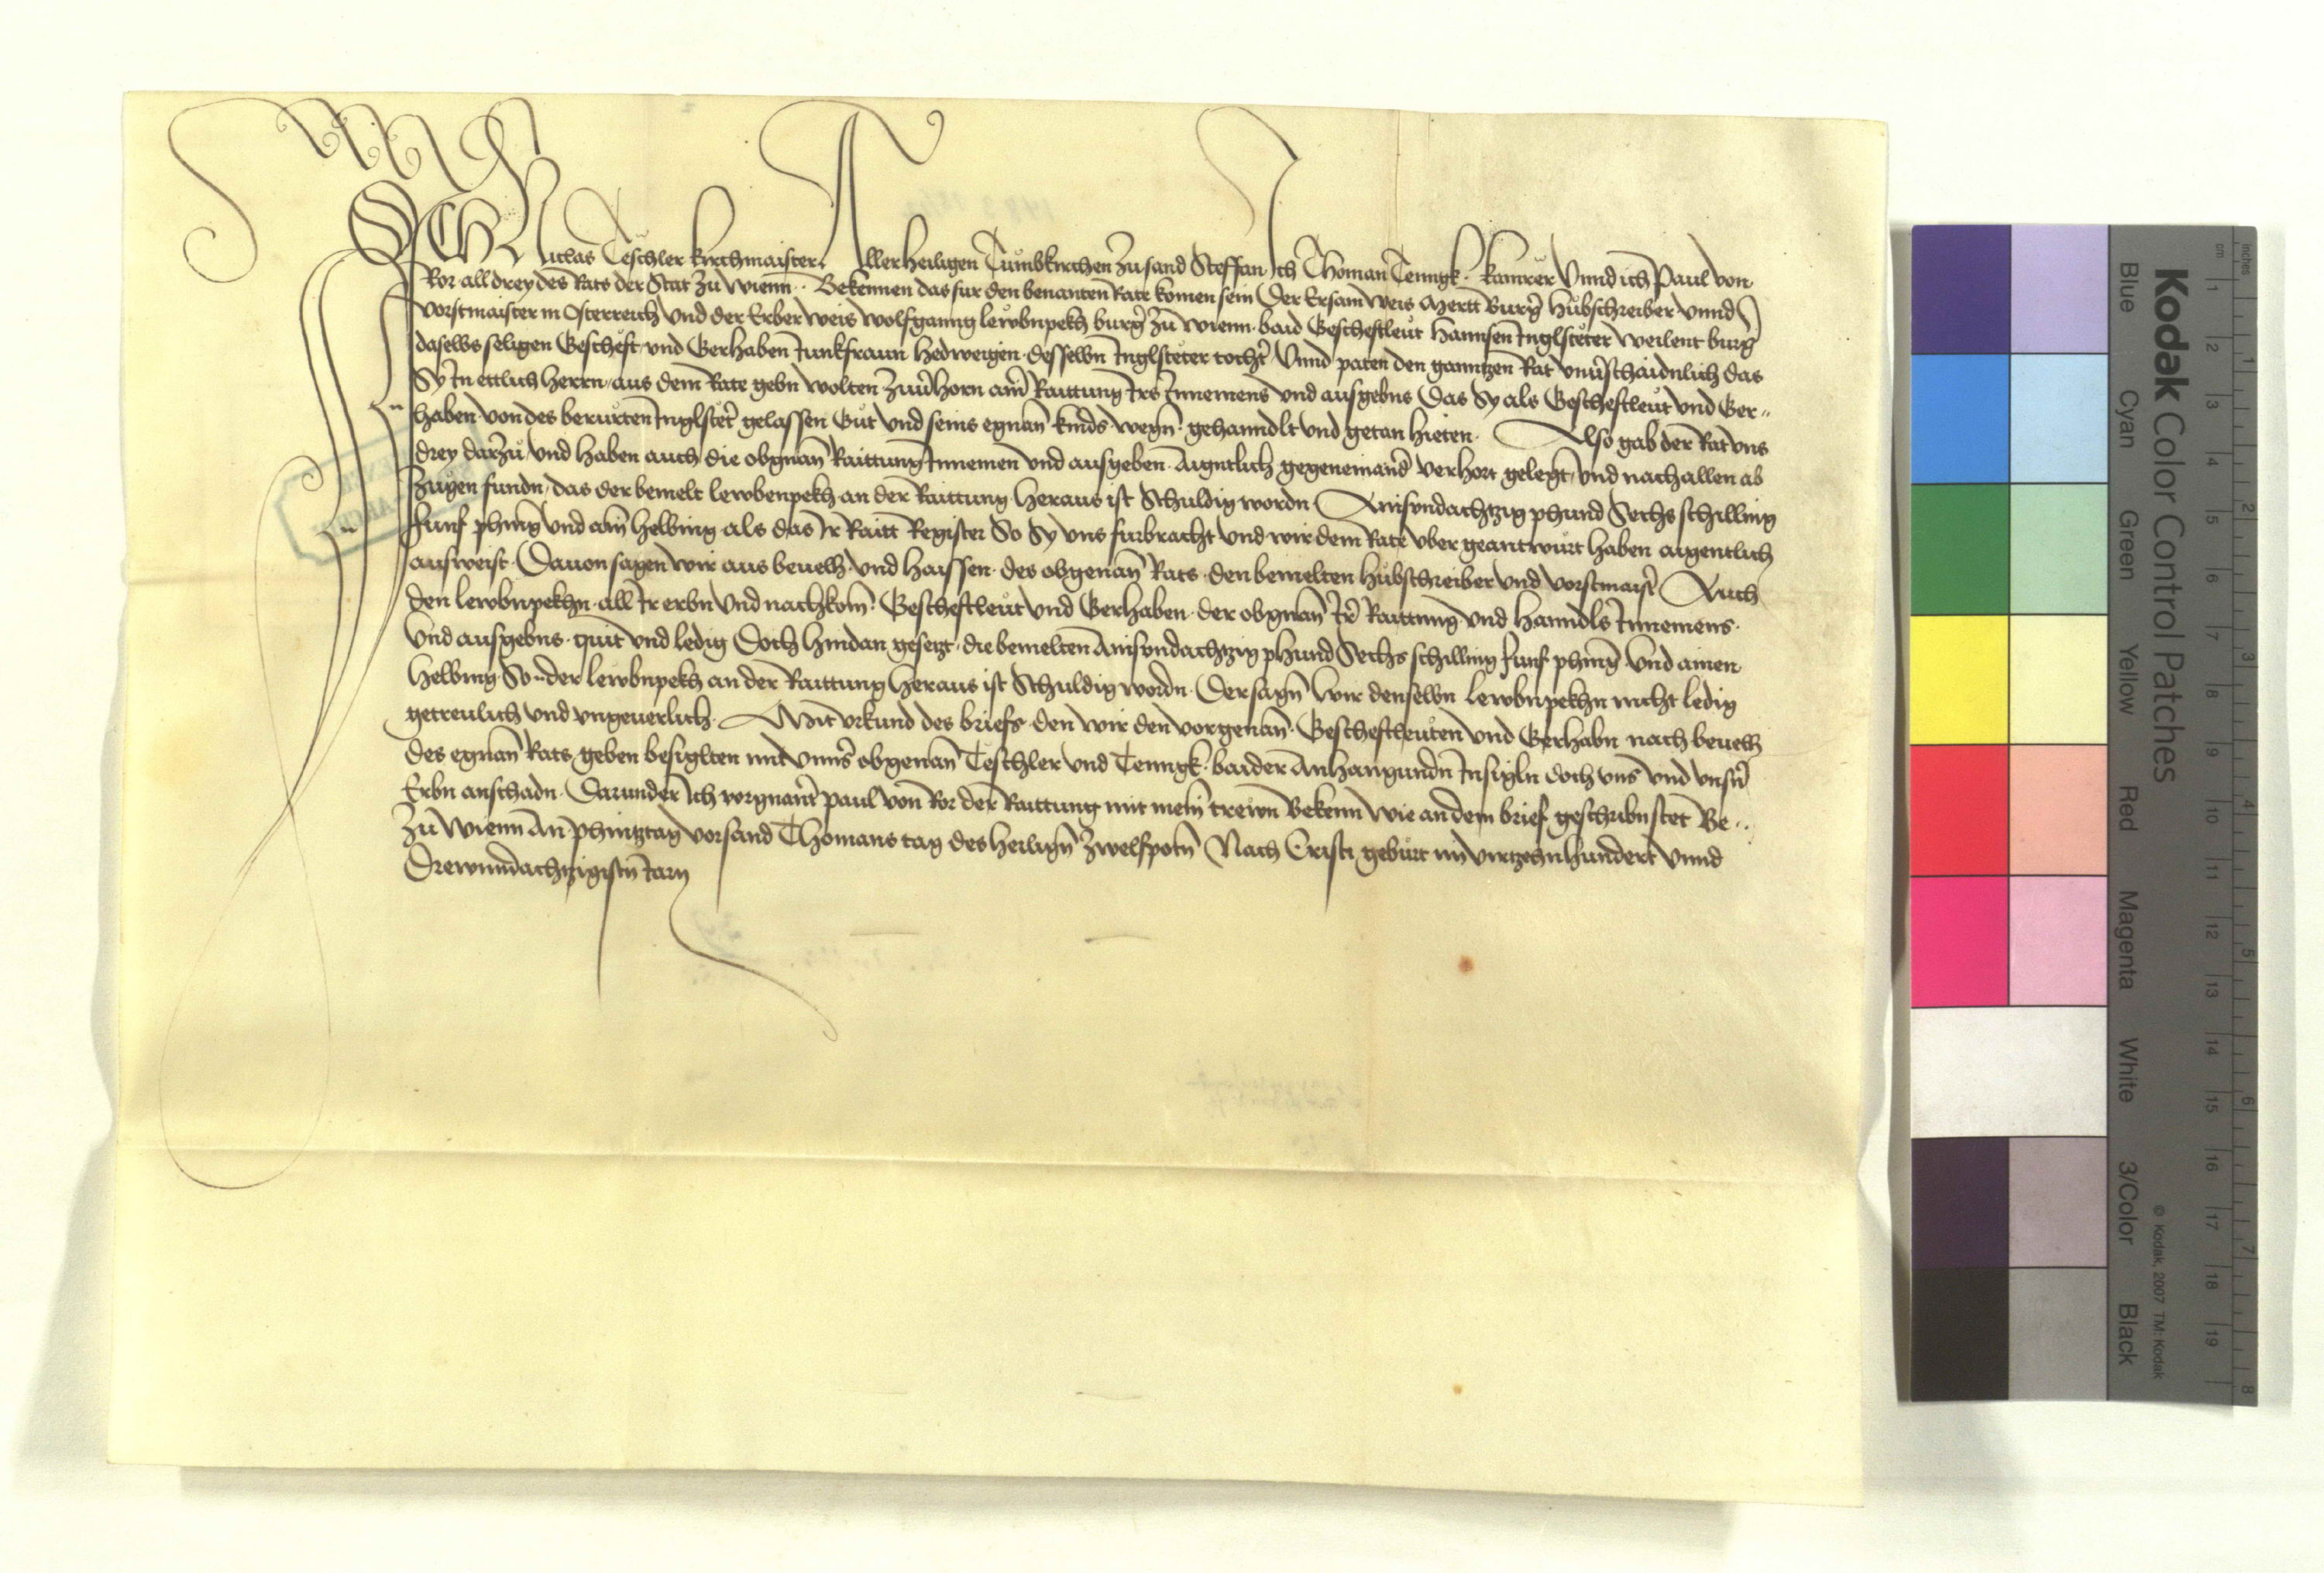 ICH Niclas Teschler kirchmaister Allerheiligen Tumbkirchen zu sand Steffan Ich Thoman Tenngk Kamrer Unnd ich Paul von
Ror all drey des Rats der Stat zu Wienn Bekennen das fur den benanten Rate komen sein Der Ersam weis Mertt Burg hubschreiber unnd
vorstmaister in Osterreich und der Erber weis wolfganng lewbnpekh burg zu wienn baid Gescheftleut hannsen Inglsteter weilent burg
daselbs seligen Gescheft und Gerhaben Junkfraun hedweigen desselbn Inglsteter tocht Unnd paten den ganntzen Rat unuschaidnlich das
Sy In ettlich herrn aus dem Rate gebn wolten zuuhorn ain Raittung Irs Innemens und ausgebns Das Sy als Gescheftleut und Ger
haben von des berurten Inglstet gelassen Gut und seins egnan kinds wegn gehanndlt und getan hieten Also gab der Rat uns
drey darzu und haben auch die obgnan Raittung Innemen und ausgeben aigntlich gegeneinand verhort gelegt und nach allen ab
zugen fundn das der bemelt lewbenpekh an der Raittung heraus ist Schuldig wordn Ainsundachtzig phund Sechs schilling
funf phing und ain helbing als das Ir Raitt Register So Sy uns furbracht und wir dem Rate uber geantwurt haben aigentlich
ausweist Dauon sagen wir aus beuelh und haissen des obgenan Rats den bemelten hubschreiber und vorstmaist Auch
den lewbnpekhn all Ir erbn und nachkom Gescheftleut und Gerhaben der obgnan Ir Raittung und hanndls Innemens
und ausgebns quit und ledig Doch hindan gesetzt die bemelten Ainsundachtzig phund Sechs schilling funf phing und ainen
helbing So der lewbnpekh an der Raittung heraus ist Schuldig wordn Der sagn wir denselbn lewbnpekhn nicht ledig
getreulich und ungeuerlich Mit urkund des briefs den wir den vorgenan Gescheftleuten und Gerhabn nach beuelh
des egnan Rats geben besiglten mit unns obgenan Teschler und Tenngk baider Anhangundn Insigln doch uns und unsn
Erbn an schadn Darunder Ich vorgnant Paul von Ror der Raittung mit mein trewn Bekenn wie an dem brief geschribn stet Be
Zu Wienn An Phintztag vor sand Thomans tag des heilign Zwelfpotn Nach Cristi geburt im virtzehnhundert unnd
Drewunddachtzigistn Jarn
Kodak Color Control Patches
Blue Cyan Green Yellow Red Magenta White 3/Color Black
© Kodak, 2007 TM: Kodak
cm 1 2 3 4 5 6 7 8 9 10 11 12 13 14 15 16 17 18 19
inches 1 2 3 4 5 6 7 8